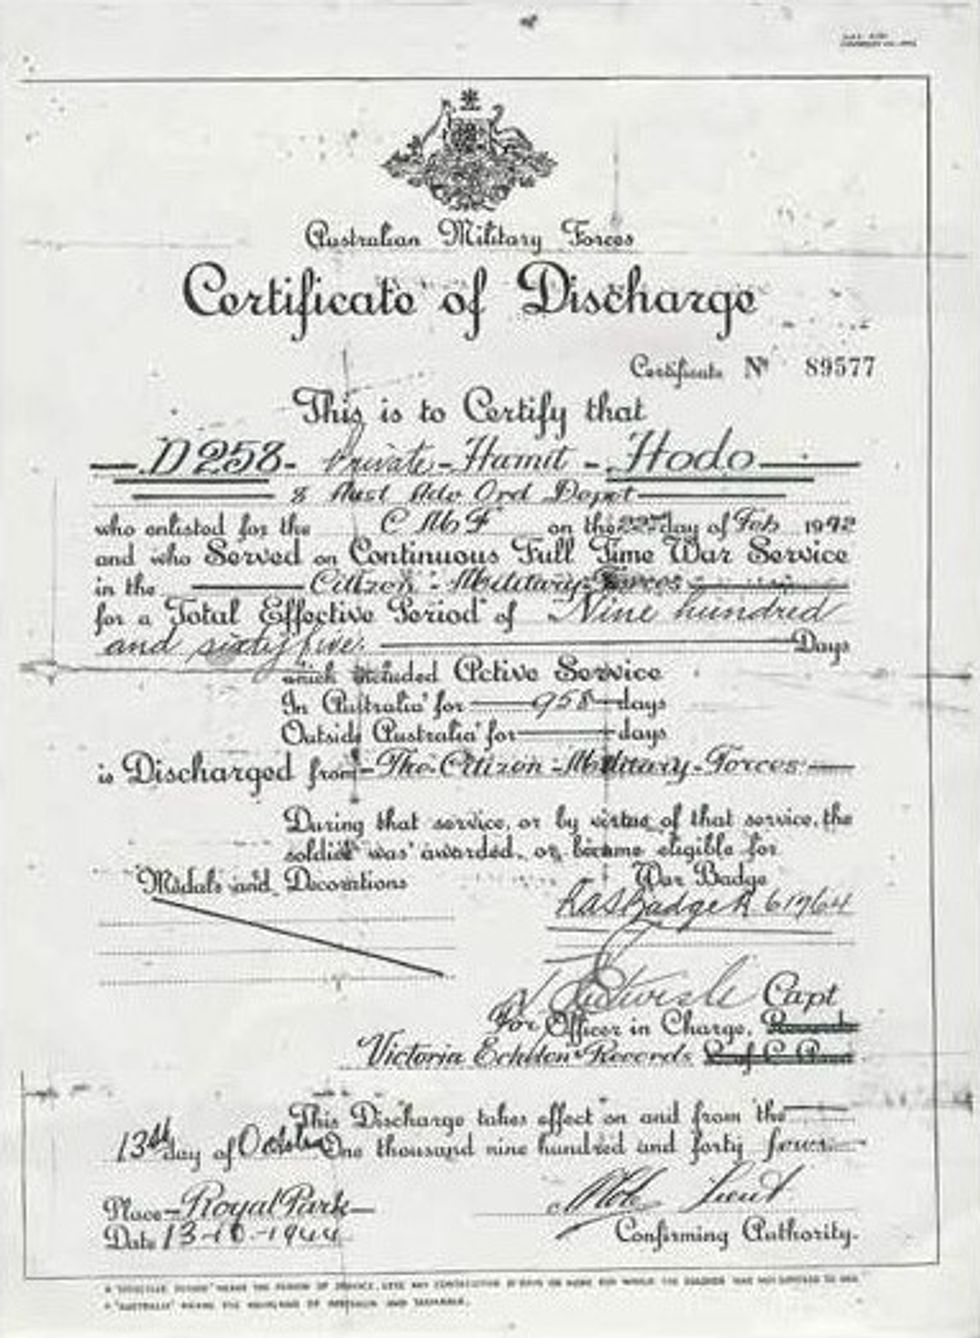 Australian Military Forces
Certificate of Discharge
Certificate No 89577
This is to Certify that
D258 - Private - Hamit - Hodo
8 Aust Adv Ord Depot
who enlisted for the C M F on the 22nd day of Feb 1942
and who Served on Continuous Full Time War Service
in the Citizen - Military - Forces
for a Total Effective Period of Nine hundred
and sixty five Days
which included Active Service
In Australia for 958 days
Outside Australia for days
is Discharged from - The - Citizen - Military - Forces
During that service, or by virtue of that service, the
soldier was awarded, or became eligible for
Medals and Decorations
War Badge
RAS Badge A 61964
Capt
For Officer in Charge, Records
Victoria Echelon & Records
This Discharge takes effect on and from the
13th day of October One thousand nine hundred and forty four
Place - Royal Park
Lieut
Date 13-10-1944
Confirming Authority.